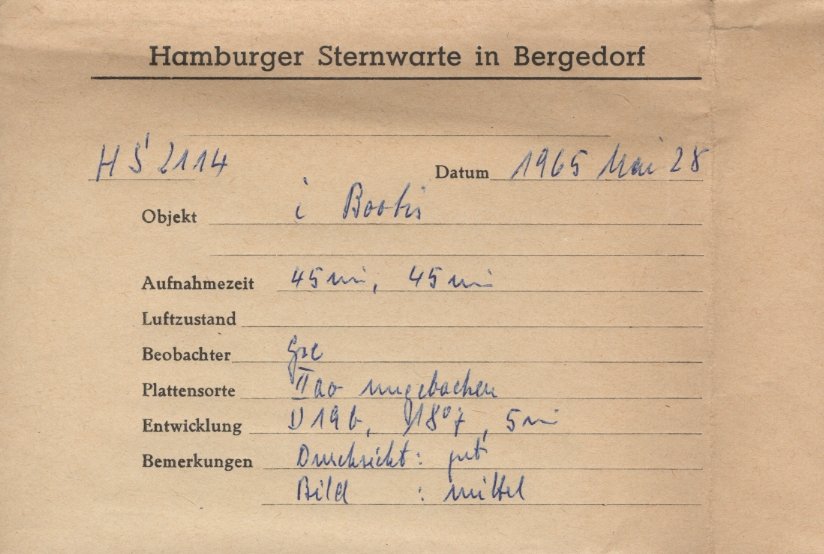 Hamburger Sternwarte in Bergedorf
HS 2114 Datum 1965 Mai 28
Objekt i Bootis
Aufnahmezeit 45 min, 45 min
Luftzustand
Beobachter
Plattensorte IIa0 ungebacken
Entwicklung D19b, 18°, 5 min
Bemerkungen Durchsicht: gut
Bild : mittel